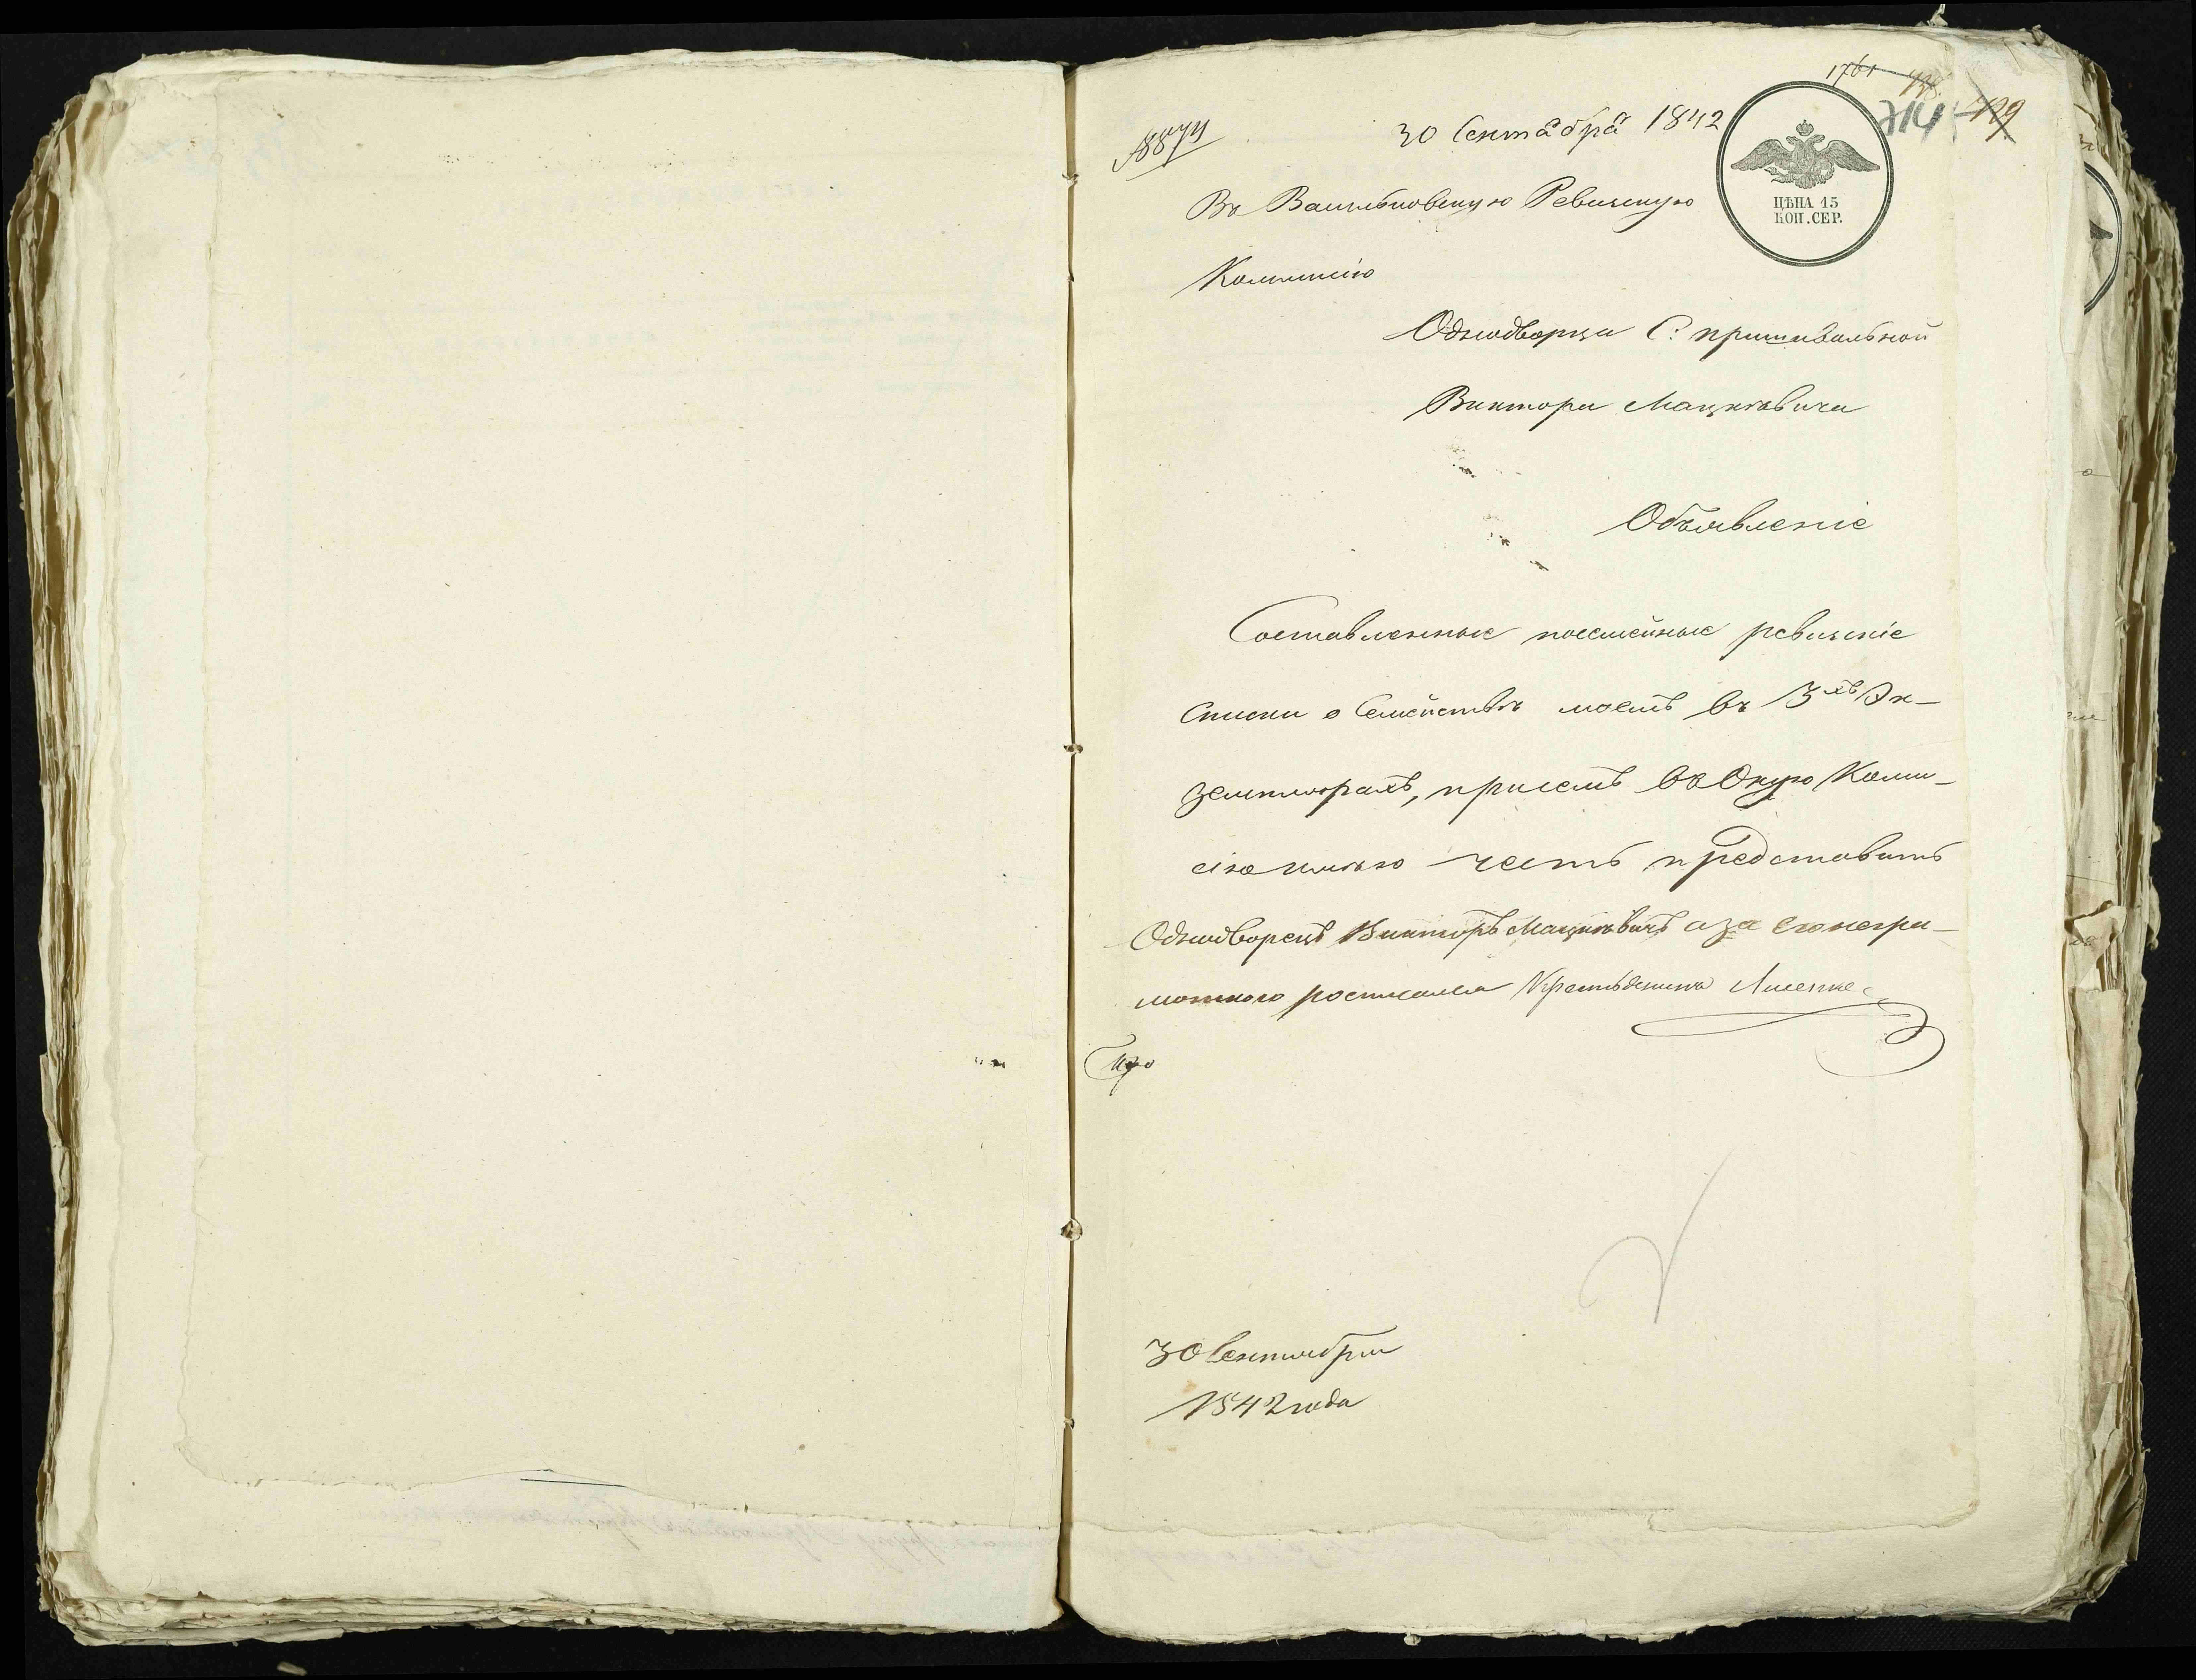 1761
714 729
№ 8874
30 Сентабра 1842
ЦѢНА 15
КОП. СЕР.
Въ Васильковскую Ревизскую
Коммисію
Однодворца С: пришивальной
Виктора Мацкѣвича
Объявленіе
Составленные посемейные ревизскіе
Списки о Семействѣ моемъ въ 3хъ Эк-
земплярахъ, присемъ въ Оную Комми-
сію имѣю честь представить
Однодворецъ Викторъ Мацкѣвичъ аза его негра-
мотного росписался Крестьянинъ
30 Сентября
1842 года